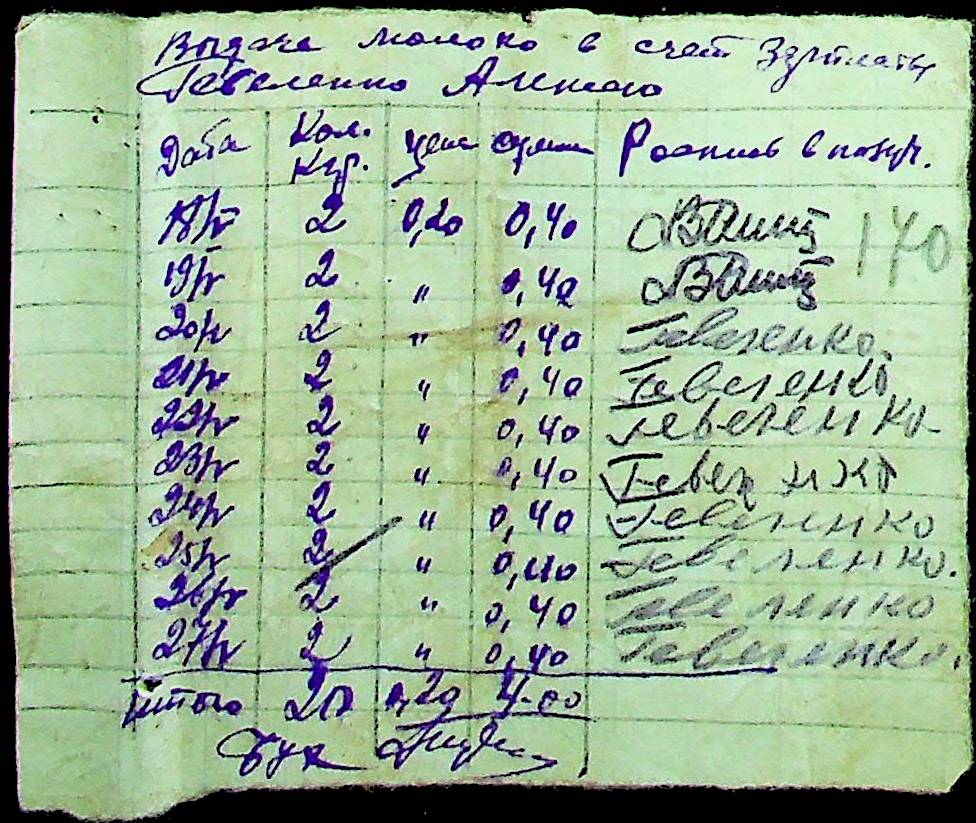 Выдача молоко в счет Зарплаты
Гевеленко
Дата Кол. Кгр. цена сумма Роспись в получ.
18/IV 2 0,20 0,40 140
19/IV 2 " 0,40
20/IV 2 " 0,40 Гевеленко.
21/IV 2 " 0,40 Гевеленко
22/IV 2 " 0,40 Гевеленко.
23/IV 2 " 0,40
24/IV 2 " 0,40 Гевеленко
25/IV 2 " 0,40 Гевеленко.
26/IV 2 " 0,40 Гевеленко
27/IV 2 " 0,40 Гевеленко.
Итого 20 0,20 4-00
Бух